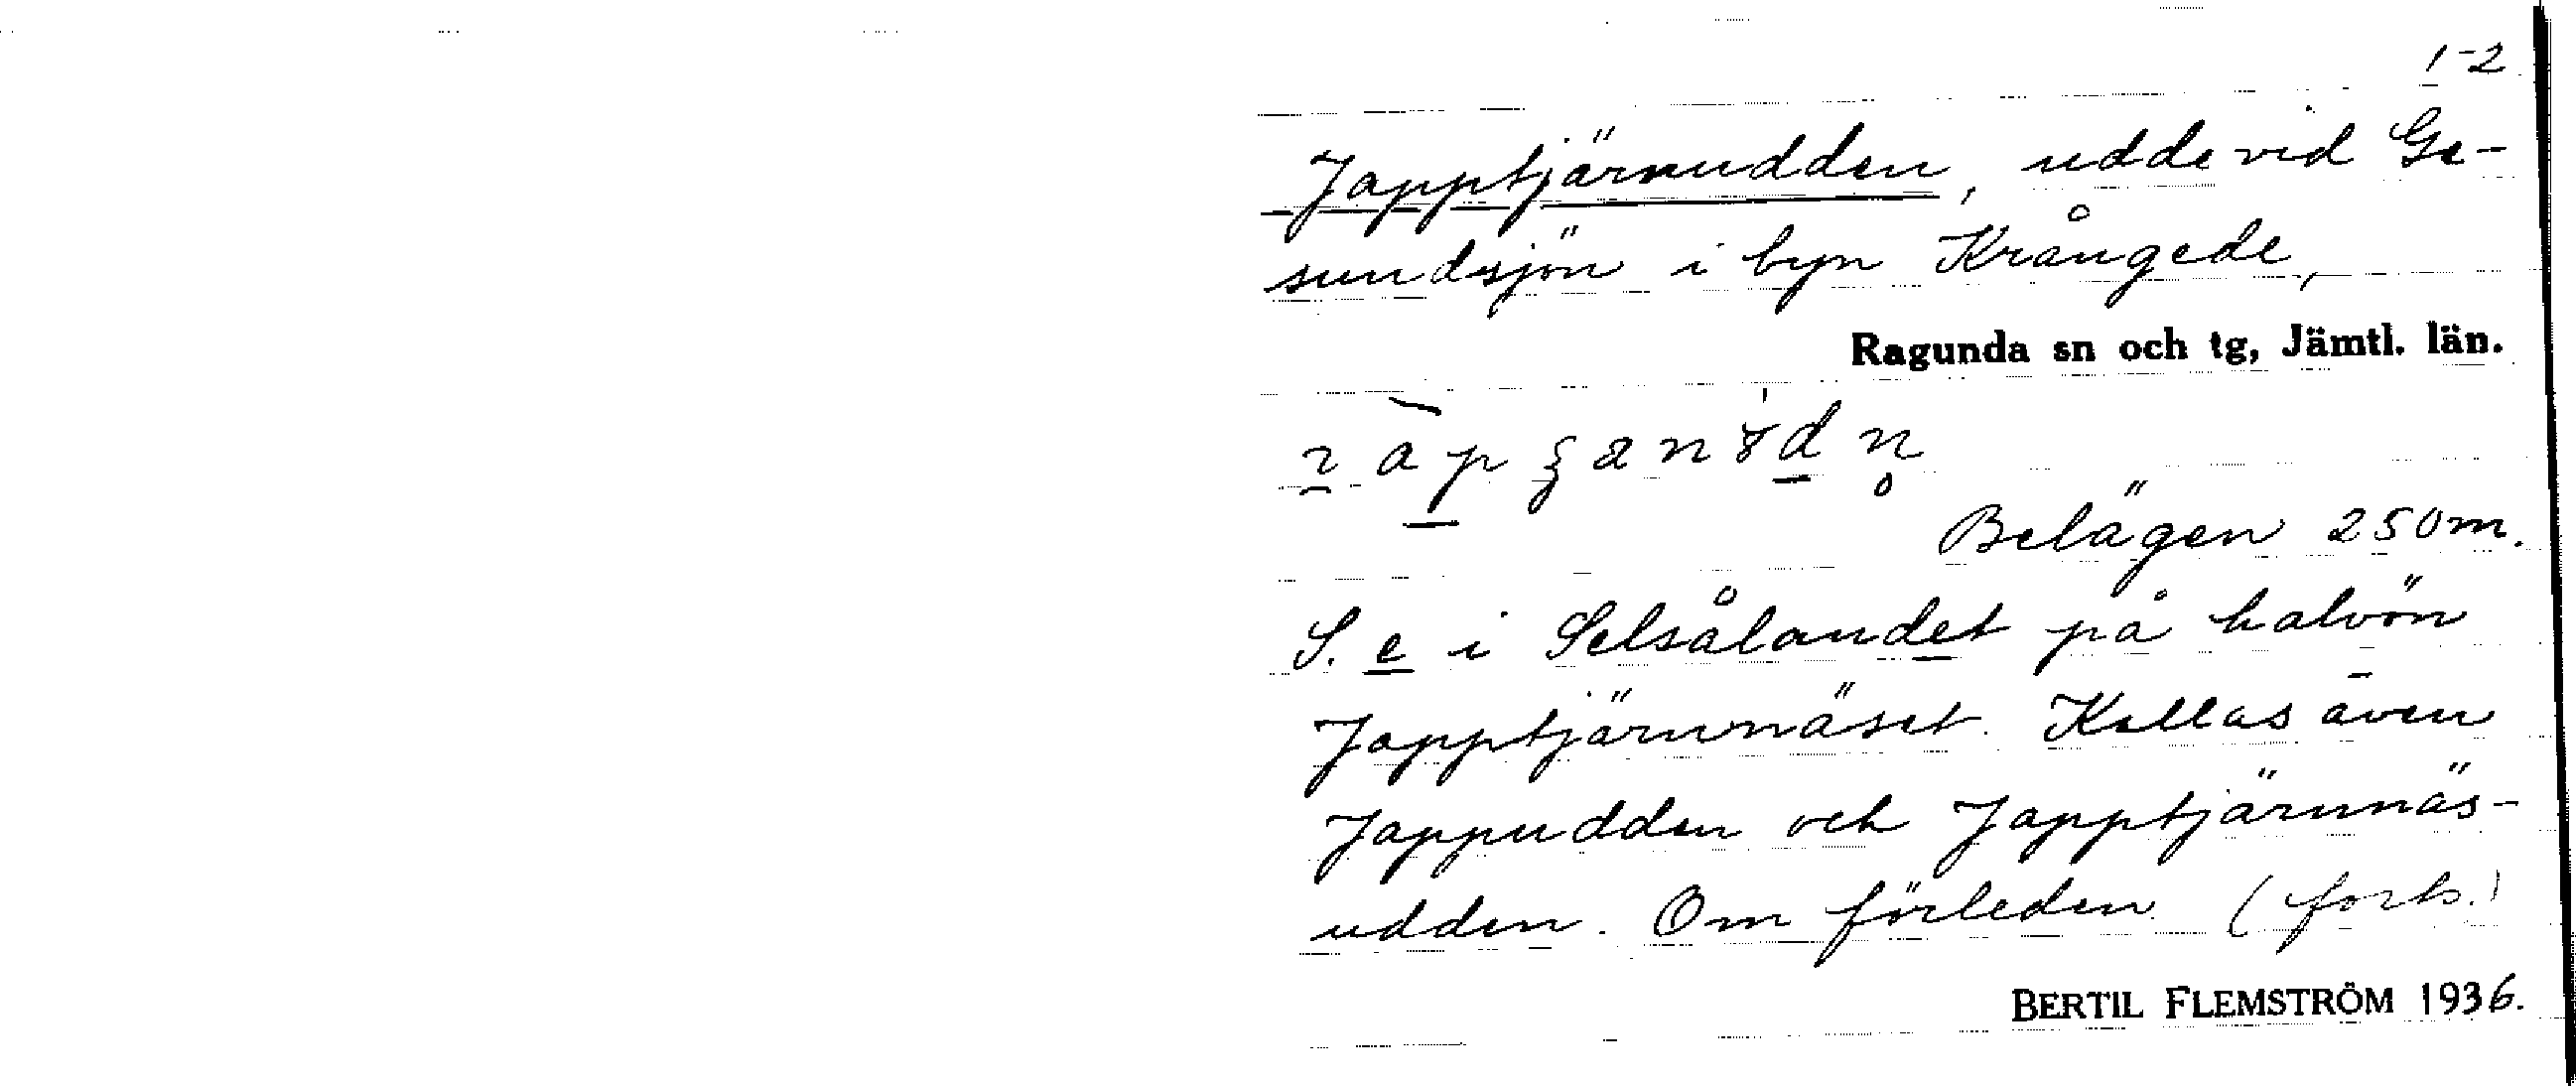 1-2
Japptjärnudden, udde vid Ge-
sundsjön i byn Krångede,
Ragunda sn och tg, Jämtl. län.
Belägen 250 m.
S. e i Selsålandet på halvön
Japptjärnnäset. Kallas även
Jappudden och Japptjärnnäs-
udden. Om förleden (forts.)
BERTIL FLEMSTRÖM 1936.